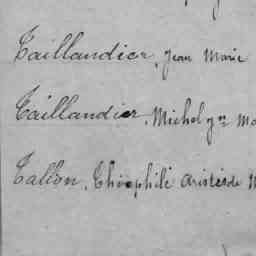 Taillandier, Jean Marie
Taillandier, Michel
Talion, Théophile Aristide M